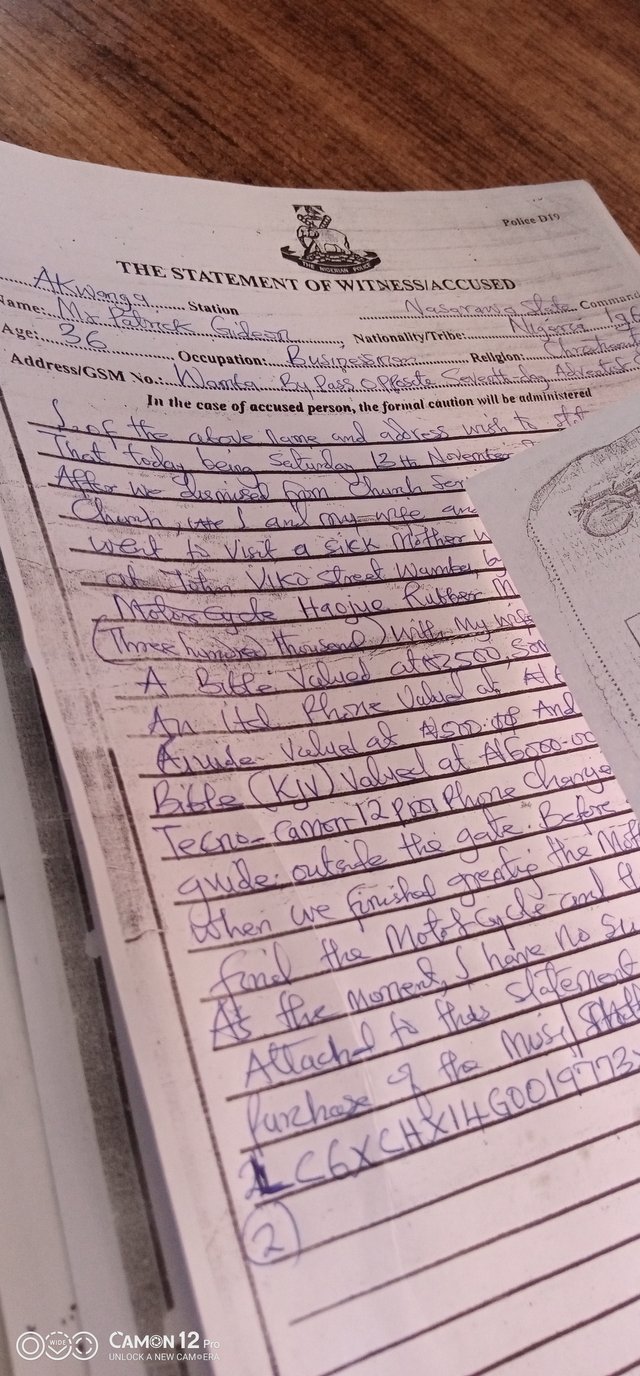 Police D19
THE NIGERIAN POLICE
THE STATEMENT OF WITNESS/ACCUSED
Akwanga Station Nasarawa State Command
Name: Mr Patrick Gideon, Nationality/Tribe: Nigeria
Age: 36 Occupation: Businessman Religion:
Address/GSM No.: Wamba By Pass Opposite Seventh day Adventist
In the case of accused person, the formal caution will be administered
I of the above name and address wish to
That today being Saturday 13th November
After we dismised from Church
Church, I and my wife
went to visit a sick Mother
at John Street Wamba,
Motorcycle Haojue Rubber
(Three hundred thousand) with my wife
A Bible Valued at ₦2500,
An Itel Phone Valued at
Valued at ₦500.00 And
Bible (KJV) Valued at ₦6000-00
Tecno-Camon-12 Phone charger
guide; outside the gate. Before
When we finished greeting the
find the Motorcycle and
As the moment, I have no
Attached to this statement
purchase of the
LC6XCHX14G0019773
(2)
CAMON 12 Pro
UNLOCK A NEW CAMERA
WIDE